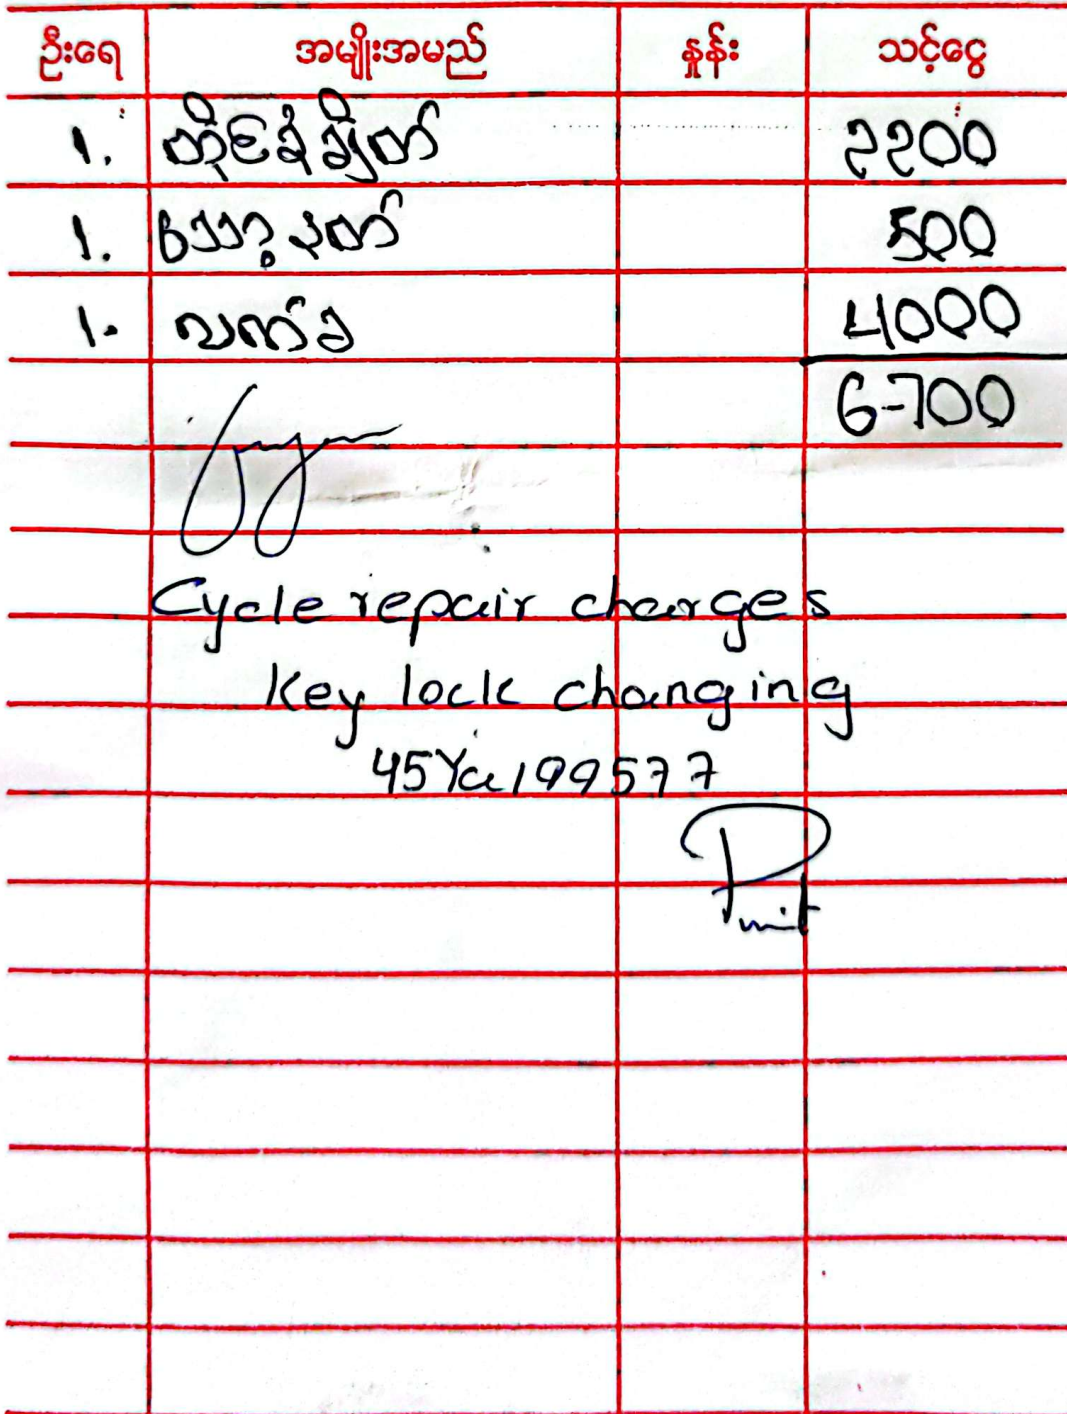 ဦးရေ အမျိုးအမည် နှုန်း သင့်ငွေ
1. တိုင်ခုံချိတ် 2200
1. သော့ခတ် 500
1. လက်ခ 4000
6-700
Cycle repair charges
key lock changing
45Ya/99577